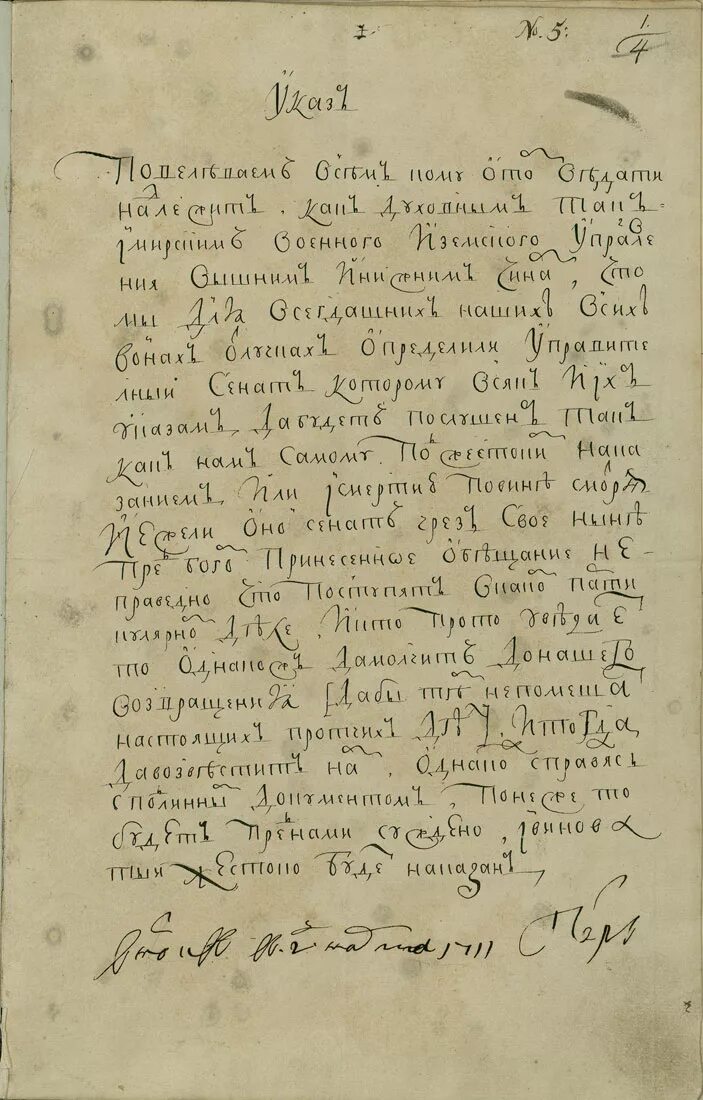 1.
No. 5:
1/4
Указъ
Повелѣваемъ всѣмъ кому о то вѣдати
надлежитъ, какъ духовнымъ такъ
ї мирскимъ военного и земского управле
ния вышнимъ и нижнимъ чина, что
мы для всегдашнихъ нашихъ в сихъ
воинахъ отлучкахъ определили управите
лный сенатъ которому всякъ и їхъ
указам, да будетъ послушенъ такъ
какъ нам самому под жестоким нака
занием, или ї смертию по вине смотря
И ежели оно сенатъ чрез свое нынѣ
пре бого принесенное обѣщание не-
праведно что поступятъ в како парти
кулярно дѣле, и кто про то увѣдае
то однакожъ да молчитъ до нашего
возвращения [дабы тѣ не помеша
настоящих протчих дѣл], и тогда
да возвѣститъ на, однако справясь
с подлинны документомъ, понеже то
будетъ пред нами суждено, ї винова
тый жестоко буде наказанъ,
1711 Петръ